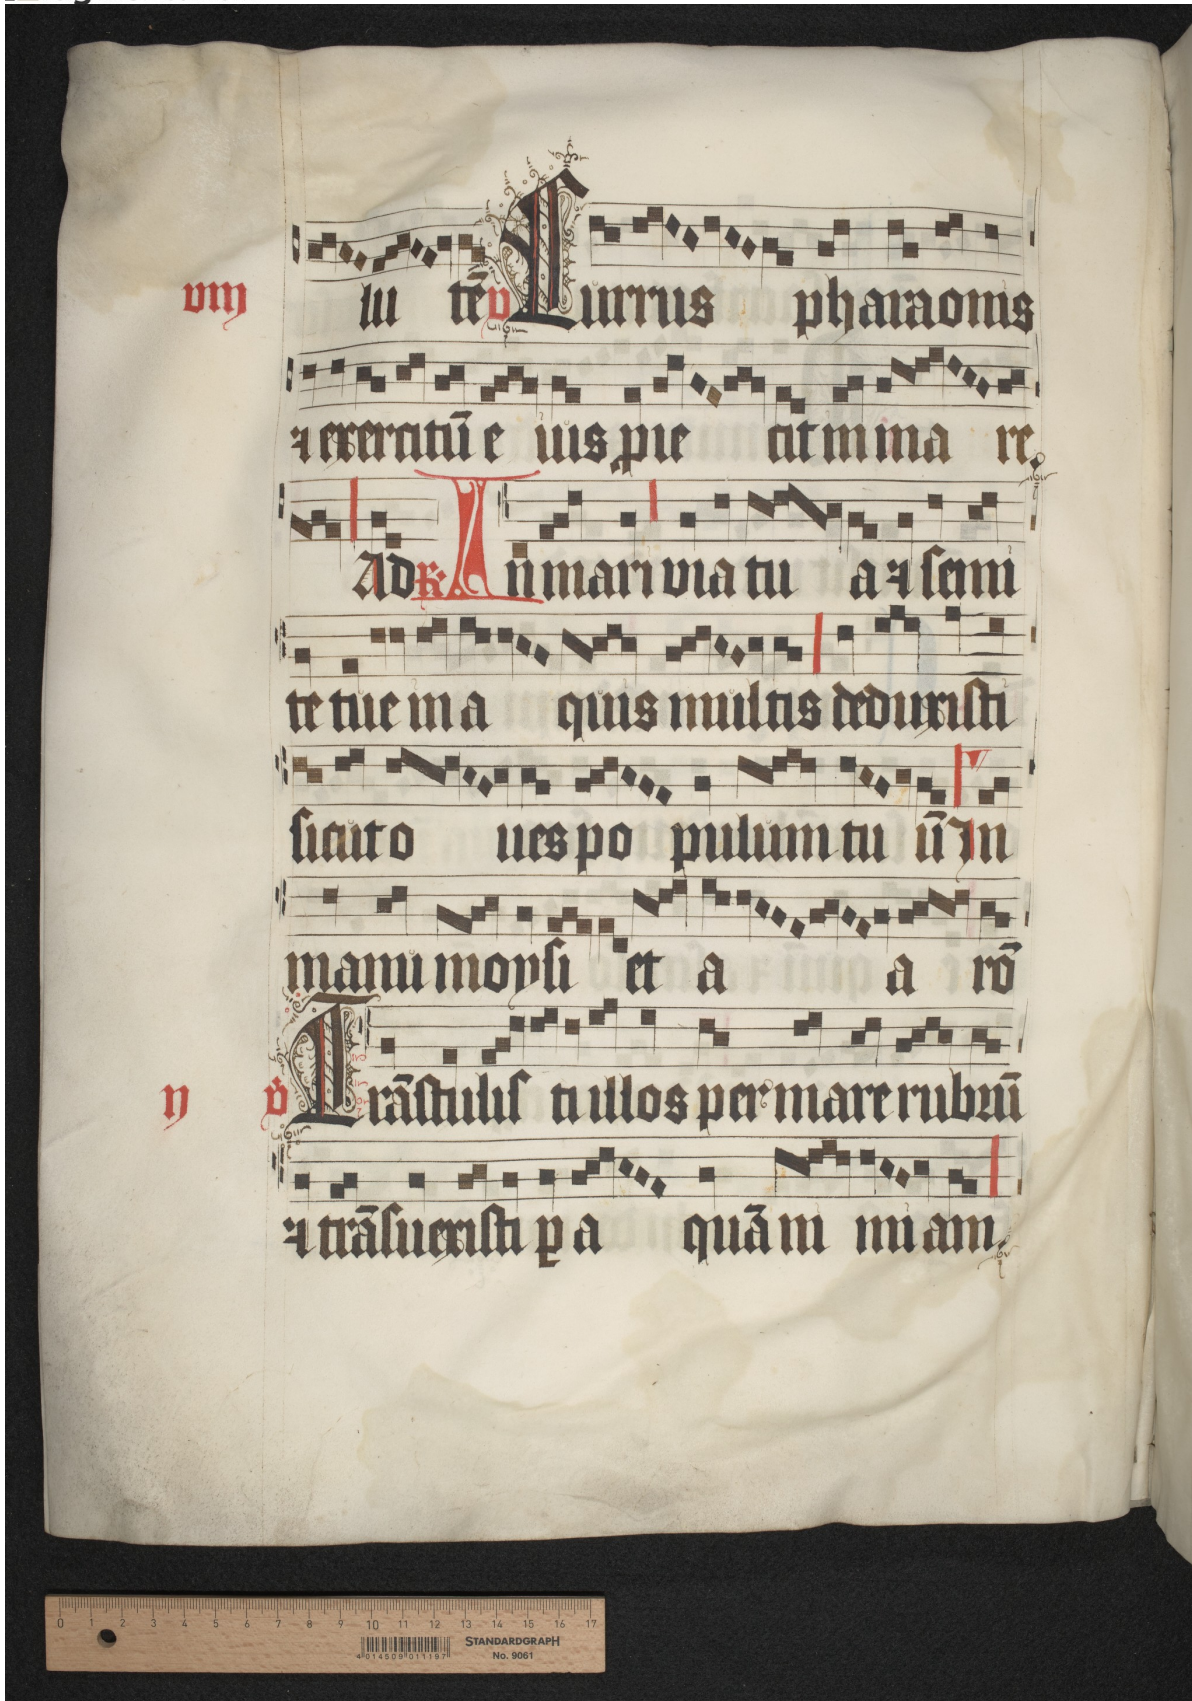 viii lu tē v Currus pharaonis
⁊ exercitū e ius proie cit in ma re.
Ad R. In mari via tu a ⁊ semi
te tue in a quis multis deduxisti
sicut o ues po pulum tu ū In
manu moysi et a a rō
ii v Trāstulis ti illos per mare rubrū
⁊ trāsuexisti ꝑ a quā ni mi am.
0 1 2 3 4 5 6 7 8 9 10 11 12 13 14 15 16 17
STANDARDGRAPH
4 014509 011197 No. 9061